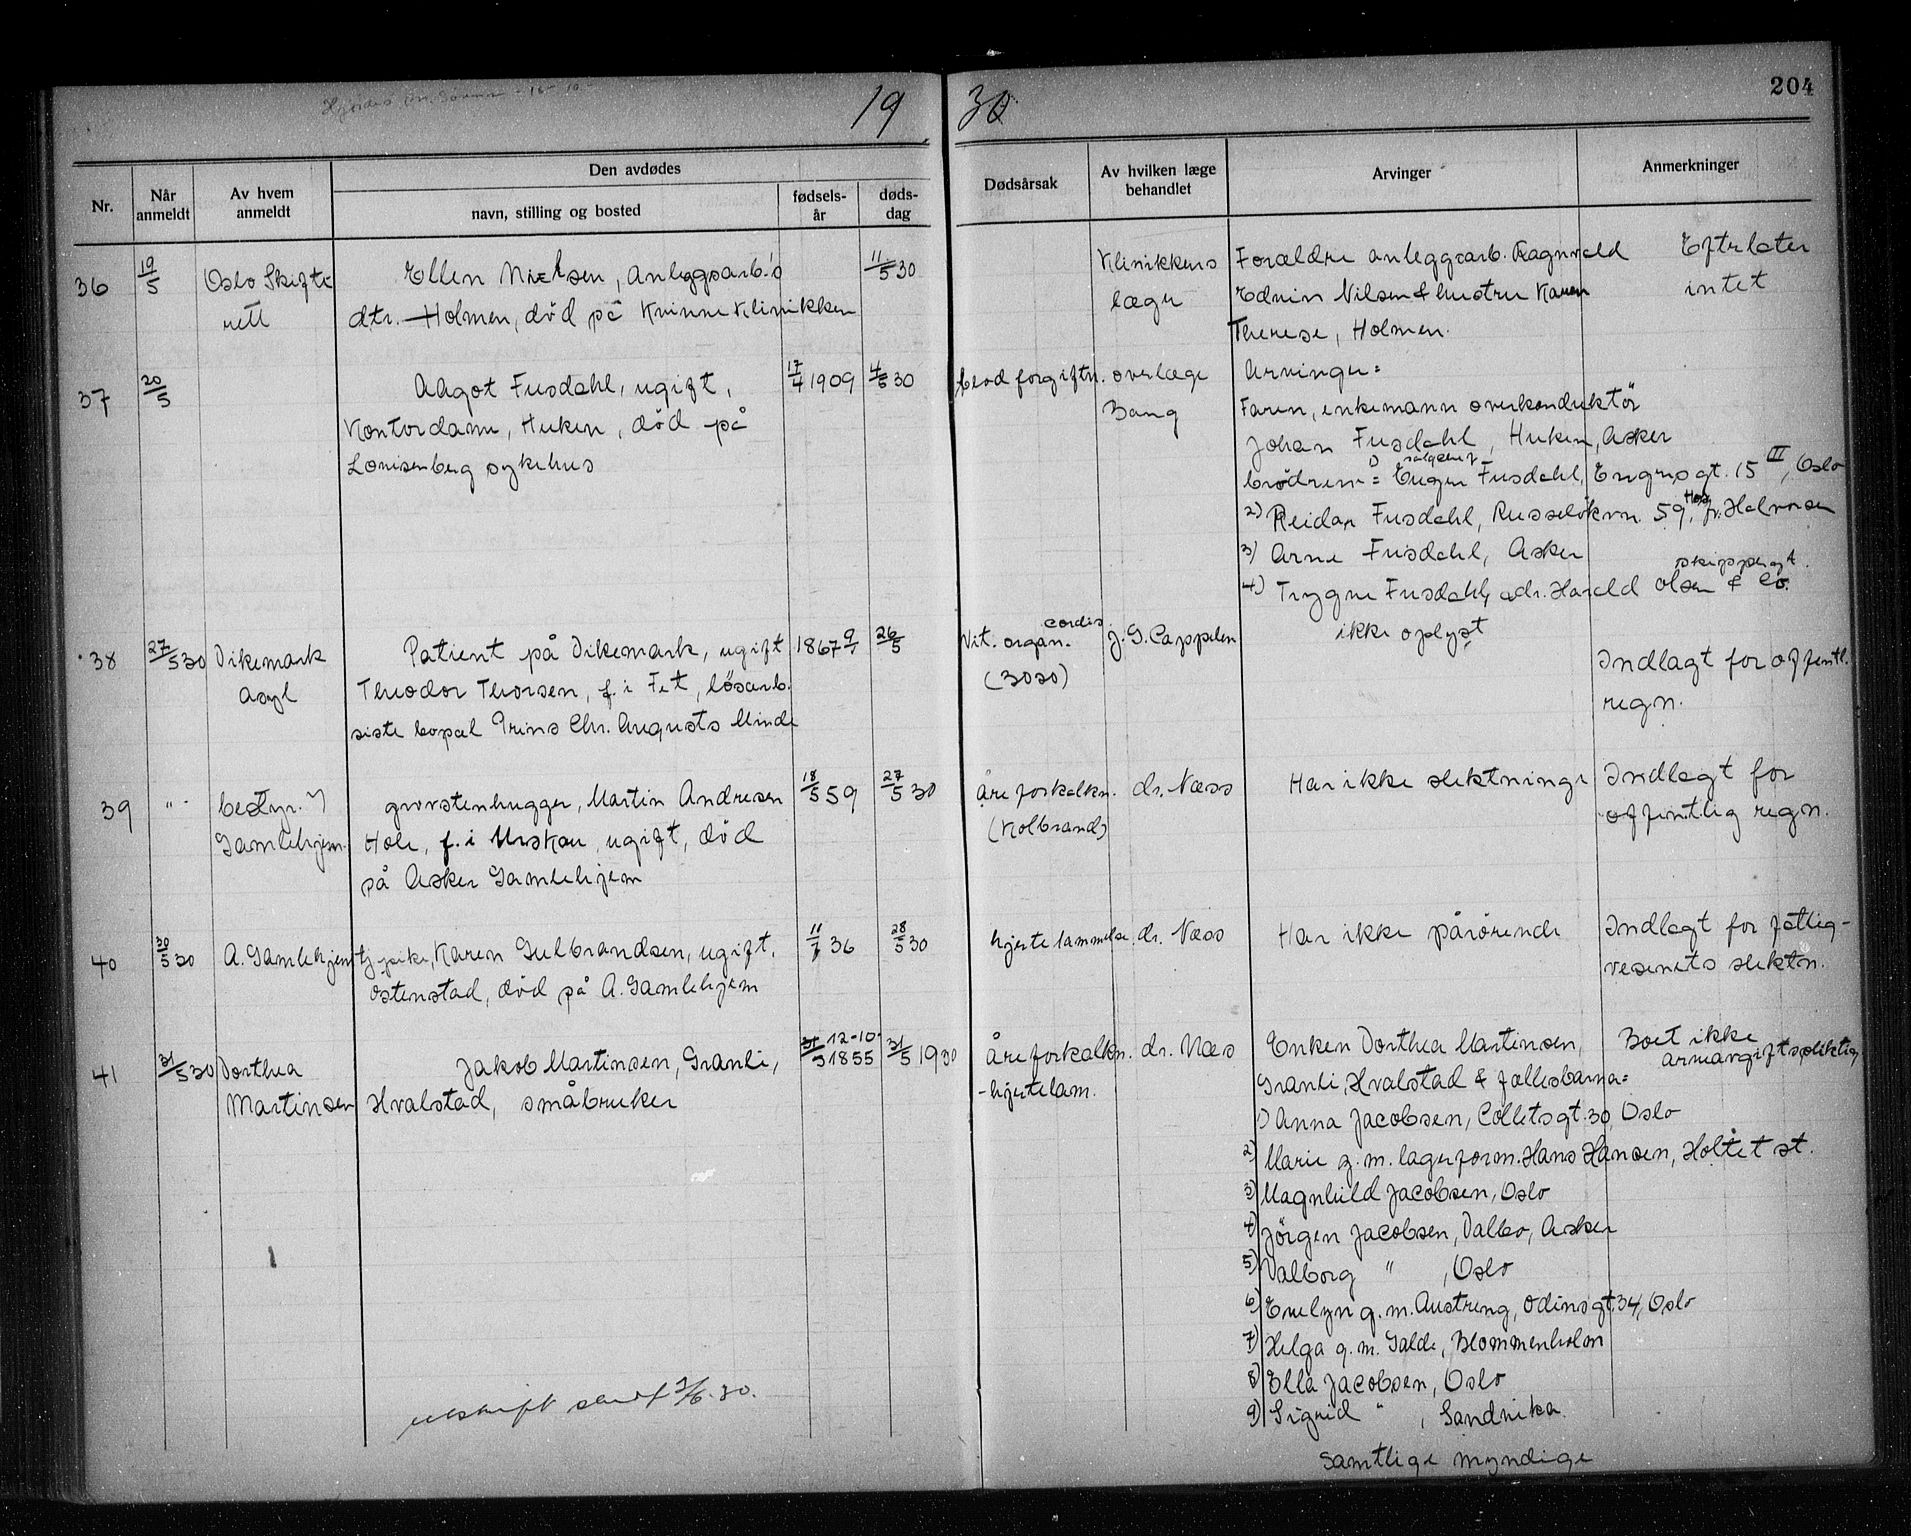 19 30
204
Nr.
Når anmeldt
Av hvem anmeldt
Den avdødes
navn, stilling og bosted
fødsels-år
døds-dag
Dødsårsak
Av hvilken læge behandlet
Arvinger
Anmerkninger
36
19/5
Oslo Skifte
rett
Ellen Nielsen, anleggsarb.'s
dtr. Holmen, død på Kvinneklinikken
11/5 30
Klinikkens
læge
Forældre anleggsarb. Ragnvald
Edvin Nilsen & hustru Karen
Therese, Holmen.
Efterlater
intet
37
20/5
Aagot Fusdahl, ugift,
Kontordame, Huken, død på
Lovisenberg sykehus
17/4 1909
4/5 30
blodforgiftn.
overlæge
Bang
Arvinger:
Faren, enkemann overkonduktör
Johan Fusdahl, Huken, Asker
brødrene: 1) Eugen Fusdahl, Engros gt. 15 III, Oslo
2) Reidar Fusdahl, Russeløkvn. 59, Hos fr. Halvorsen
3) Arne Fusdahl, Asker
4) Trygve Fusdahl, adr. Harald Olsen & Co. skippergt.
38
27/5 30
Dikemark
Asyl
Patient på Dikemark, ugift
Theodor Thorsen, f. i Fet, lösarb.
siste bopæl Prins Chr. Augusts Minde
1867 9/1
26/5
Vit. organ. cordis
(3030)
J. G. Cappelen
ikke oplyst
Indlagt for offentl.
regn.
39
" "
bestyr.
Gamlehjem.
gruvstenhugger, Martin Andresen
Hole, f. i Urskou, ugift, død
på Asker Gamlehjem
18/5 59
27/5 30
åreforkalkn.
(Kolbrand)
dr. Næss
Har ikke slektninge
Indlagt for
offentlig regn.
40
30/5 30
A. Gamlehjem
tj.pike, Karen Gulbrandsen, ugift,
Østenstad, død på A. Gamlehjem
11/7 36
28/5 30
hjertelammelse
dr. Næss
Har ikke pårørende
Indlagt for fattig-
vesenets slektn.
41
31/5 30
Dorthea
Martinsen
Jakob Martinsen, Granli,
Hvalstad, småbruker
12-10-
1855
31/5 1930
åreforkalkn.
-hjertelam.
dr. Næs
Enken Dorthea Martinsen,
Granli, Hvalstad & fællesbarna:
1) Anna Jacobsen, Colletsgt. 30, Oslo
2) Marie g. m. lagerform. Hans Hansen, Holtet st.
3) Magnhild Jacobsen, Oslo
4) Jörgen Jacobsen, Dalbo, Asker
5) Valborg " , Oslo
6) Evelyn g. m. Austreng, Odinsgt. 34, Oslo
7) Helga g. m. Galde, Blommenholm
8) Ella Jacobsen, Oslo
9) Sigrid " , Sandvika
Samtlige myndige
Boet ikke
arveavgiftspliktig
utskrift sendt 2/6.30.